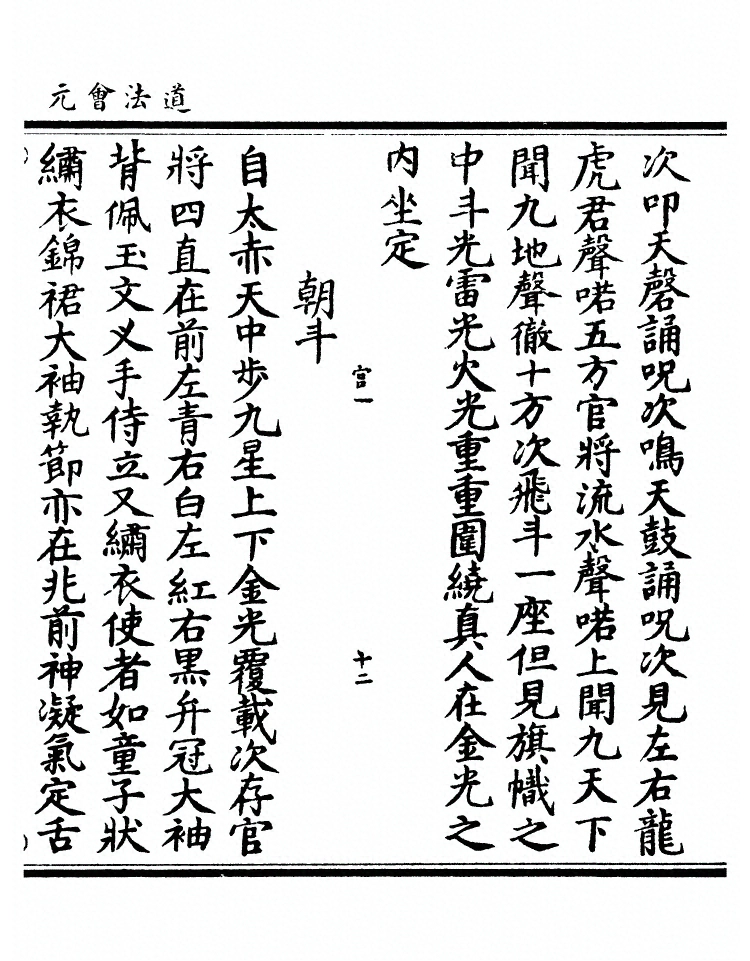 道法會元
次叩天磬誦呪次鳴天鼓誦呪次見左右龍
虎君聲喏五方官將流水聲喏上聞九天下
聞九地聲徹十方次飛斗一座但見旗幟之
中斗光雷光火光重重圍繞真人在金光之
内坐定
宫一
十二
朝斗
自太赤天中步九星上下金光覆載次存官
將四直在前左青右白左紅右黑弁冠大袖
背佩玉文乂手侍立又繡衣使者如童子狀
繡衣錦裙大袖執節亦在兆前神凝氣定舌